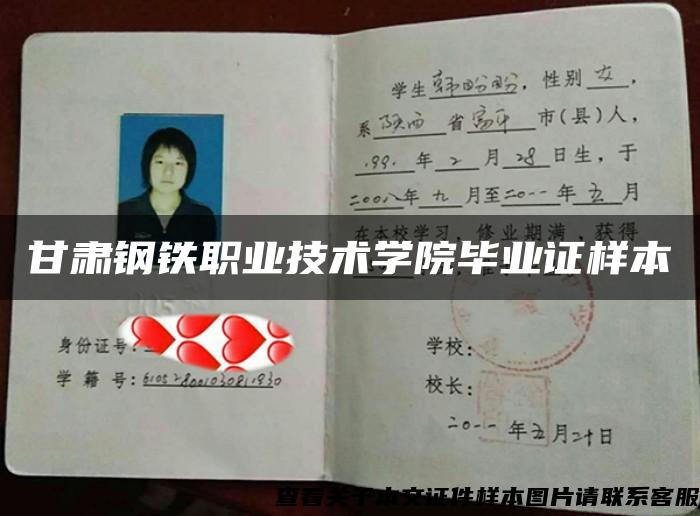 学生韩盼盼，性别女，
系陕西省富平市(县)人，
199.年2月28日生，于
二00八年九月至二0一一年五月
在本校学习，修业期满，获得
甘肃钢铁职业技术学院毕业证样本
身份证号:
学籍号:
学校:
校长:
二0一一年五月二十日
查看关于本文证件样本图片请联系客服